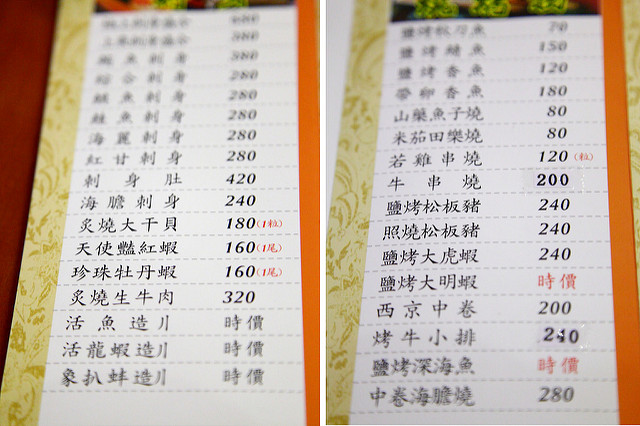 580
鮪魚刺身 280
綜合刺身 280
旗魚刺身 280
鮭魚刺身 280
海鱺刺身 280
紅甘刺身 280
刺身肚 420
海膽刺身 240
炙燒大干貝 180(1粒)
天使豔紅蝦 160(1尾)
珍珠牡丹蝦 160(1尾)
炙燒生牛肉 320
活魚造り 時價
活龍蝦造り 時價
象扒蚌造り 時價
70
鹽烤鯖魚 150
鹽烤香魚 120
帶卵香魚 180
山藥魚子燒 80
米茄田樂燒 80
若雞串燒 120(粒)
牛串燒 200
鹽烤松板豬 240
照燒松板豬 240
鹽烤大虎蝦 240
鹽烤大明蝦 時價
西京中卷 200
烤牛小排 240
鹽烤深海魚 時價
中卷海膽燒 280